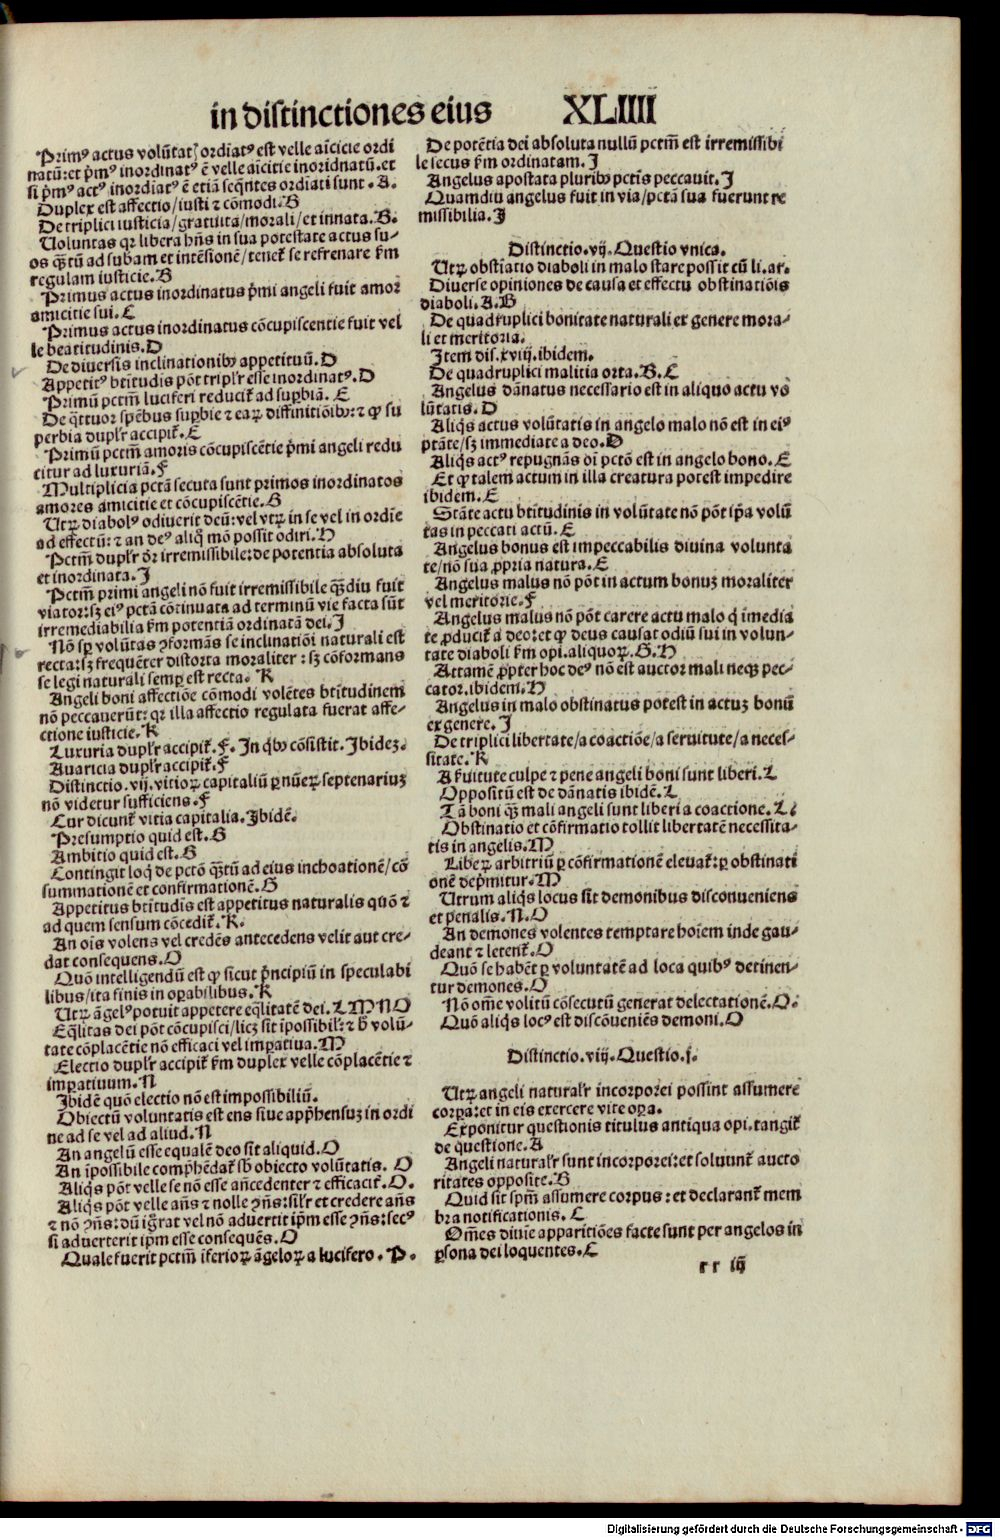 in distinctiones eius XLIIII
Primꝰ actus volūtatꝭ ordiatꝰ est velle aīcicie ordi
natū: et p̄mꝰ inordinatꝰ ē velle aīcitie inoridnatū. et
si p̄mꝰ actꝰ inordiatꝰ ē etiā seq̄ntes ordīati sunt. A.
Duplex est affectio/iusti ⁊ cōmodi. B
De triplici iusticia/gratuita/morali/et innata. B.
Uoluntas qr libera hn̄s in sua potestate actus su⸗
os q̄ꝫtū ad subam et intēsionē/tenet̄ se refrenare km̄
regulam iusticie. B
Primus actus inordinatus p̄mi angeli fuit amor
amicitie sui. C
Primus actus inordinatus cōcupiscentie fuit vel
le beatitudinis. D
De diversis inclinationibꝫ appetituū. D
Appetitꝰ bt̄itudis pōt tripl'r esse inordinatꝰ. D
Primū pctm̄ luciferi reducit̄ ad suꝑbiā. E
De q̄ttuor sp̄ebus suꝑbie ⁊ eaꝝ diffinitiōibꝫ: ⁊ ꝙ su
perbia dupl'r accipit̄. E
Primū pctm̄ amoris cōcupiscētie p̄mi angeli redu
citur ad luxuriā. F
Multiplicia pctā secuta sunt primos inordinatos
amores amicitie et cōcupiscētie. G
Utꝝ diabolꝰ odiuerit deū: vel vtꝝ in se vel in ordīe
ad effectū: ⁊ an deꝰ aliq̄ mō possit odiri. H
Pctm̄ dupl'r dr̄ irremissibile: de potentia absoluta
et inordinata. I
Pctm̄ primi angeli nō fuit irremissibile q̄ꝫdiu fuit
viator: sꝫ eiꝰ pctā cōtinuata ad terminū vie facta sūt
irremediabilia km̄ potentiā ordinatā dei. I
Nō sꝑ volūtas ꝯformās se inclinatiōi naturali est
recta: sꝫ frequēter distorta moraliter: sꝫ cōformans
se legi naturali semꝑ est recta. K
Angeli boni affectiōe cōmodi volētes bt̄itudinem
nō peccauerūt: qr illa affectio regulata fuerat affe⸗
ctione iusticie. K
Luxuria dupl'r accipit̄. F. In q̄bꝫ cōsistit. Ibideꝫ.
Auaricia dupl'r accipit̄. F
Distinctio. vij. vitioꝝ capitaliū ꝑ nūeꝝ septenariuꝫ
nō videtur sufficiens. F
Cur dicunt̄ vitia capitalia. Ibidē.
Presumptio quid est. G
Ambitio quid est. G
Contingit loq̄ de pctō q̄ꝫtū ad eius inchoationē/cō
summationē et confirmationē. G
Appetitus bt̄itudīs est appetitus naturalis quō ⁊
ad quem sensum cōcedit̄. K.
An oīs volens vel credēs antecedens velit aut cre⸗
dat consequens. O
Quō intelligendū est ꝙ sicut p̄ncipiū in speculabi
libus/ita finis in oꝑabilibus. K
Utꝝ āgelꝰ potuit appetere eq̄litatē dei. L M N O
Eq̄litas dei pōt cōcupisci/licꝫ sit īpossibil': ⁊ h̄ volū⸗
tate cōplacētie nō efficaci vel imꝑatiua. M
Electio dupl'r accipit̄ km̄ duplex velle cōplacētie ⁊
imꝑatiuum. N
Ibidē quō electio nō est impossibiliū.
Obiectū voluntatis est ens siue app̄hensuꝫ in ordi
ne ad se vel ad aliud. N
An angelū esse equalē deo sit aliquid. O
An īpossibile comp̄hēdat̄ sb̄ obiecto volūtatis. O
Aliq̄s pōt velle se nō esse an̄cedenter ⁊ efficacit̄. O.
Aliq̄s pōt velle an̄s ⁊ nolle ꝯn̄s: sil'r et credere an̄s
⁊ nō ꝯn̄s: dū ig̊rat vel nō advertit ip̄m esse ꝯn̄s: secꝰ
si adverterit ip̄m esse consequēs. O
Quale fuerit pctm̄ īferioꝝ āgeloꝝ a lucifero. P.
De potētia dei absoluta nullū pctm̄ est irremissibi
le secus km̄ ordinatam. I
Angelus apostata pluribꝫ pctīs peccauit. I
Quamdiu angelus fuit in via/pctā sua fuerunt re
missibilia. I
Distinctio. vij. Questio vnica.
Utꝝ obstīatio diaboli in malo stare possit cū li. ar.
Diverse opiniones de causa et effectu obstinatiōis
diaboli. A. B
De quadruplici bonitate naturali ex genere mora⸗
li et meritoria.
Item dis. xviij. ibidem.
De quadruplici malitia orta. B. C
Angelus dānatus necessario est in aliquo actu vo
lūtatis. D
Aliq̄s actus volūtatis in angelo malo nō est in eiꝰ
ptāte/sꝫ immediate a deo. D
Aliq̄s actꝰ repugnās oī pctō est in angelo bono. E
Et ꝙ talem actum in illa creatura potest impedire
ibidem. E
Stāte actu bt̄itudinis in volūtate nō pōt ip̄a volū
tas in peccati actū. E
Angelus bonus est impeccabilis divina volunta
te/nō sua ꝓpria natura. E
Angelus malus nō pōt in actum bonuꝫ moraliter
vel meritorie. F
Angelus malus nō pōt carere actu malo q̇ īmedia
te ꝓducit̄ a deo: et ꝙ deus causat odiū sui in volun⸗
tate diaboli km̄ opi. aliquoꝝ. G. H
Attamē ꝓpter hoc deꝰ nō est auctor mali neqꝫ pec⸗
cator. ibidem. H
Angelus in malo obstinatus potest in actuꝫ bonū
ex genere. I
De triplici libertate/a coactiōe/a seruitute/a neces⸗
sitate. K
A ꝭuitute culpe ⁊ pene angeli boni sunt liberi. L
Oppositū est de dānatis ibidē. L
Tā boni q̄ꝫ mali angeli sunt liberi a coactione. L.
Obstinatio et cōfirmatio tollit libertatē necessita⸗
tis in angelis. M
Libeꝝ arbitriū ꝑ cōfirmationē eleuat̄: ꝑ obstinati
onē dep̄mitur. M
Utrum aliq̄s locus sit demonibus disconueniens
et penalis. N. O
An demones volentes temptare hoīem inde gau⸗
deant ⁊ letent̄. O
Quō se habēt ꝑ voluntatē ad loca quibꝰ detinen⸗
tur demones. O
Nō om̄e volitū cōsecutū generat delectationē. O.
Quō aliq̄s locꝰ est discōueniēs demoni. O
Distinctio. viij. Questio. j.
Utꝝ angeli natural'r incorporei possint assumere
corꝑa: et in eis exercere vite oꝑa.
Exponitur questionis titulus antiqua opi. tangit̄
de questione. A
Angeli natural'r sunt incorporei: et soluunt̄ aucto
ritates opposite. B
Quid sit spm̄ assumere corpus: et declarant̄ mem
bra notificationis. C
Om̄es diuīe apparitiōes facte sunt per angelos in
ꝑsona dei loquentes. C
rr iij
Digitalisierung gefördert durch die Deutsche Forschungsgemeinschaft - DFG